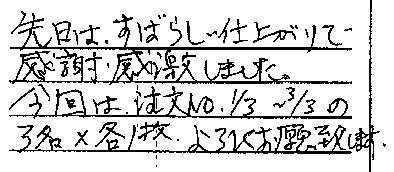 先日は、すばらしい仕上がりで
感謝・感激しました。
今回は、注文NO. 1/3 ~ 3/3 の
3名 × 各1枚 よろしくお願い致します。